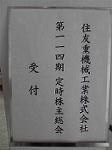 住友重機械工業株式会社
第一一四期 定時株主総会
受付